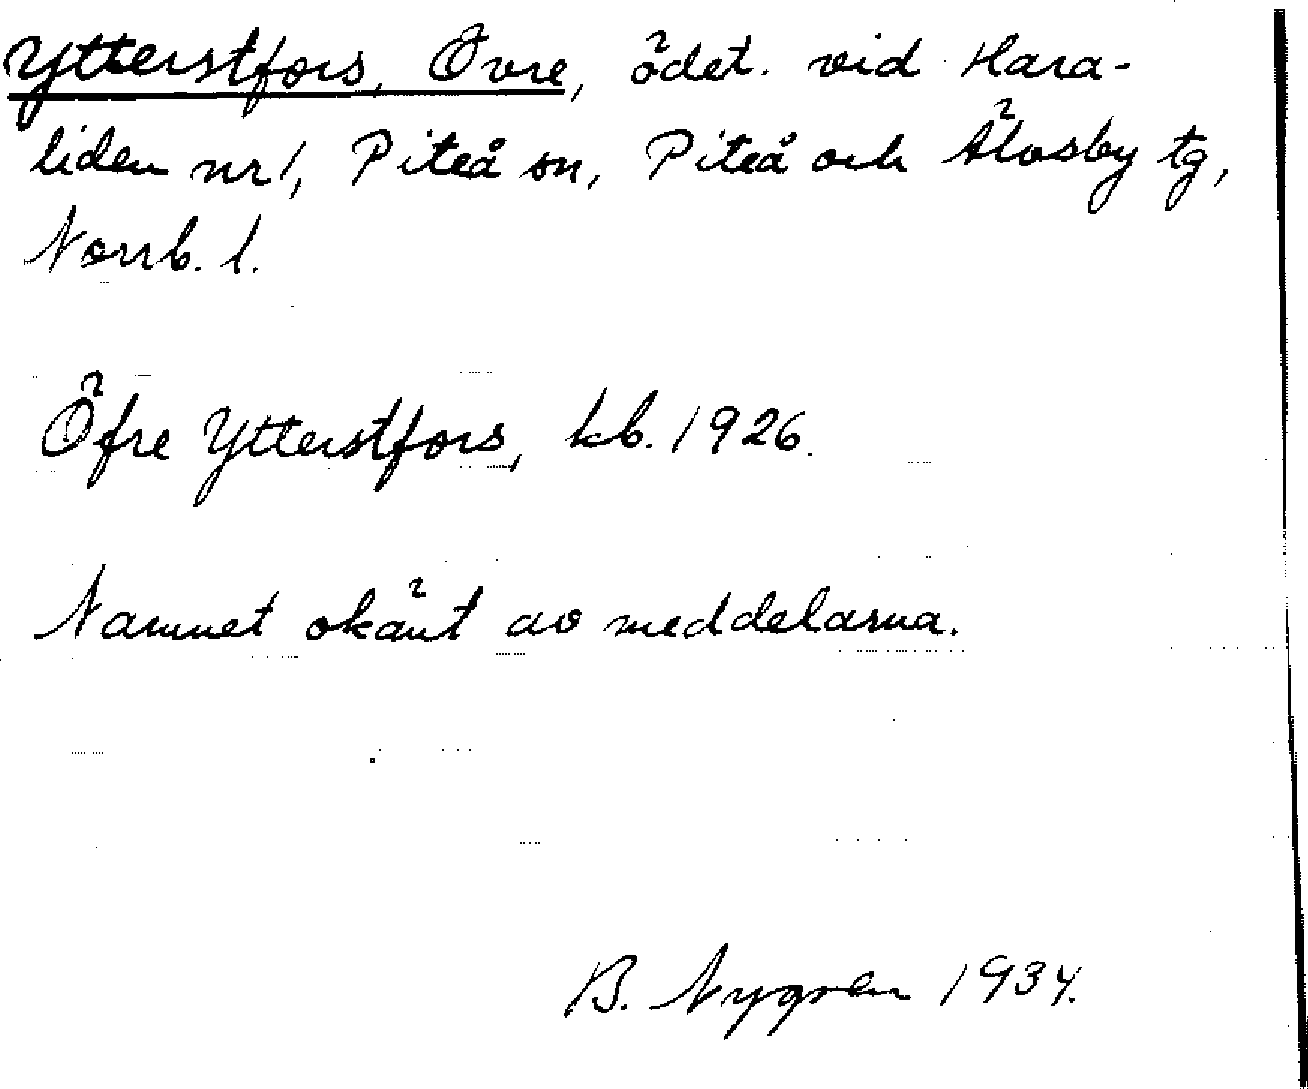 Ytterstfors, Övre, ödet. vid Hara-
liden nr 1, Piteå sn, Piteå och Älvsby tg,
Norrb. l.
Öfre Ytterstfors, kb. 1926.
Namnet okänt av meddelarna.
B. Nygren 1934.